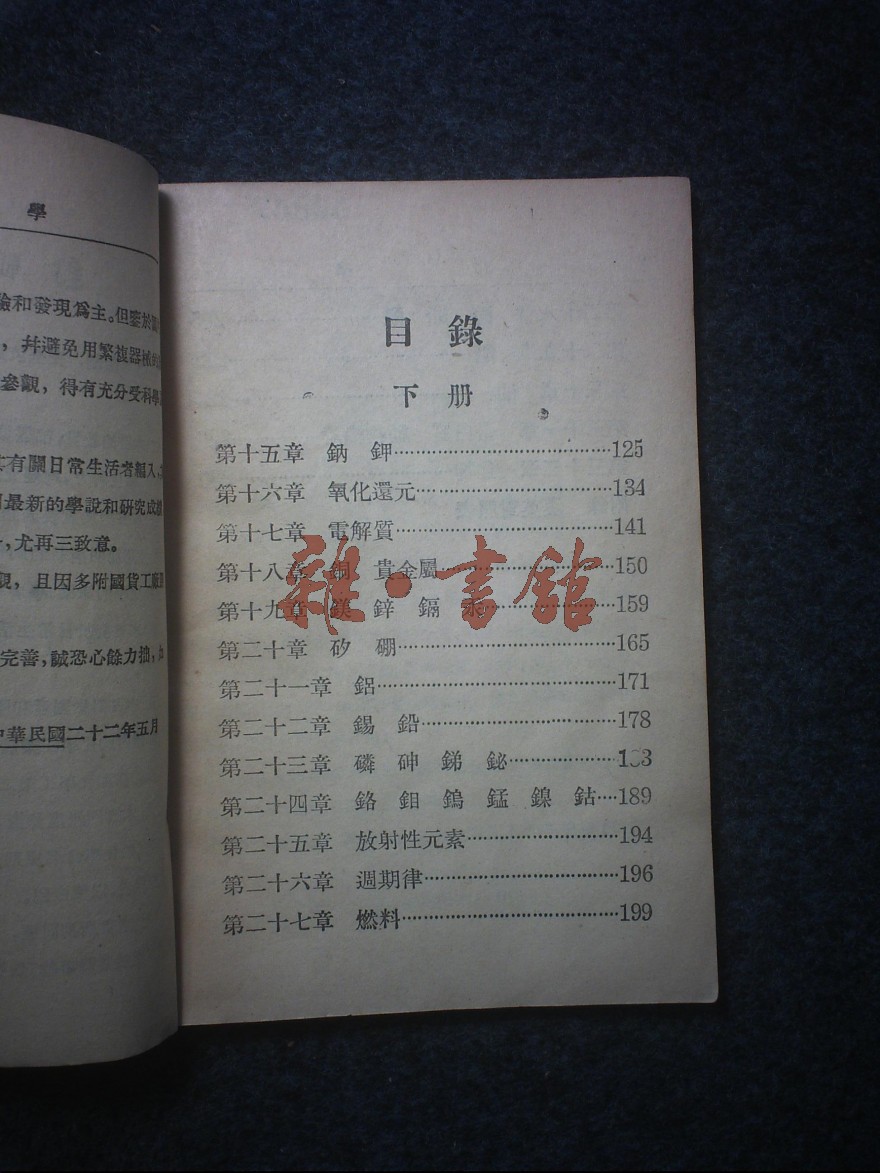 學
驗和發現爲主。但鑒於
，幷避免用繁複器械
參觀，得有充分受科學
有關日常生活者編入，
最新的學說和研究成
，尤再三致意。
觀，且因多附國貨工廠
完善，誠恐心餘力拙，
中華民國二十二年五月
目錄
下册
第十五章 鈉 鉀……125
第十六章 氧化還元……134
第十七章 電解質……141
第十八章 銅 貴金屬……150
第十九章 鎂 鋅 鎘 汞……159
第二十章 矽 硼……165
第二十一章 鋁……171
第二十二章 錫 鉛……178
第二十三章 磷 砷 銻 鉍……183
第二十四章 鉻 鉬 鎢 錳 鎳 鈷……189
第二十五章 放射性元素……194
第二十六章 週期律……196
第二十七章 燃料……199
雜·書館